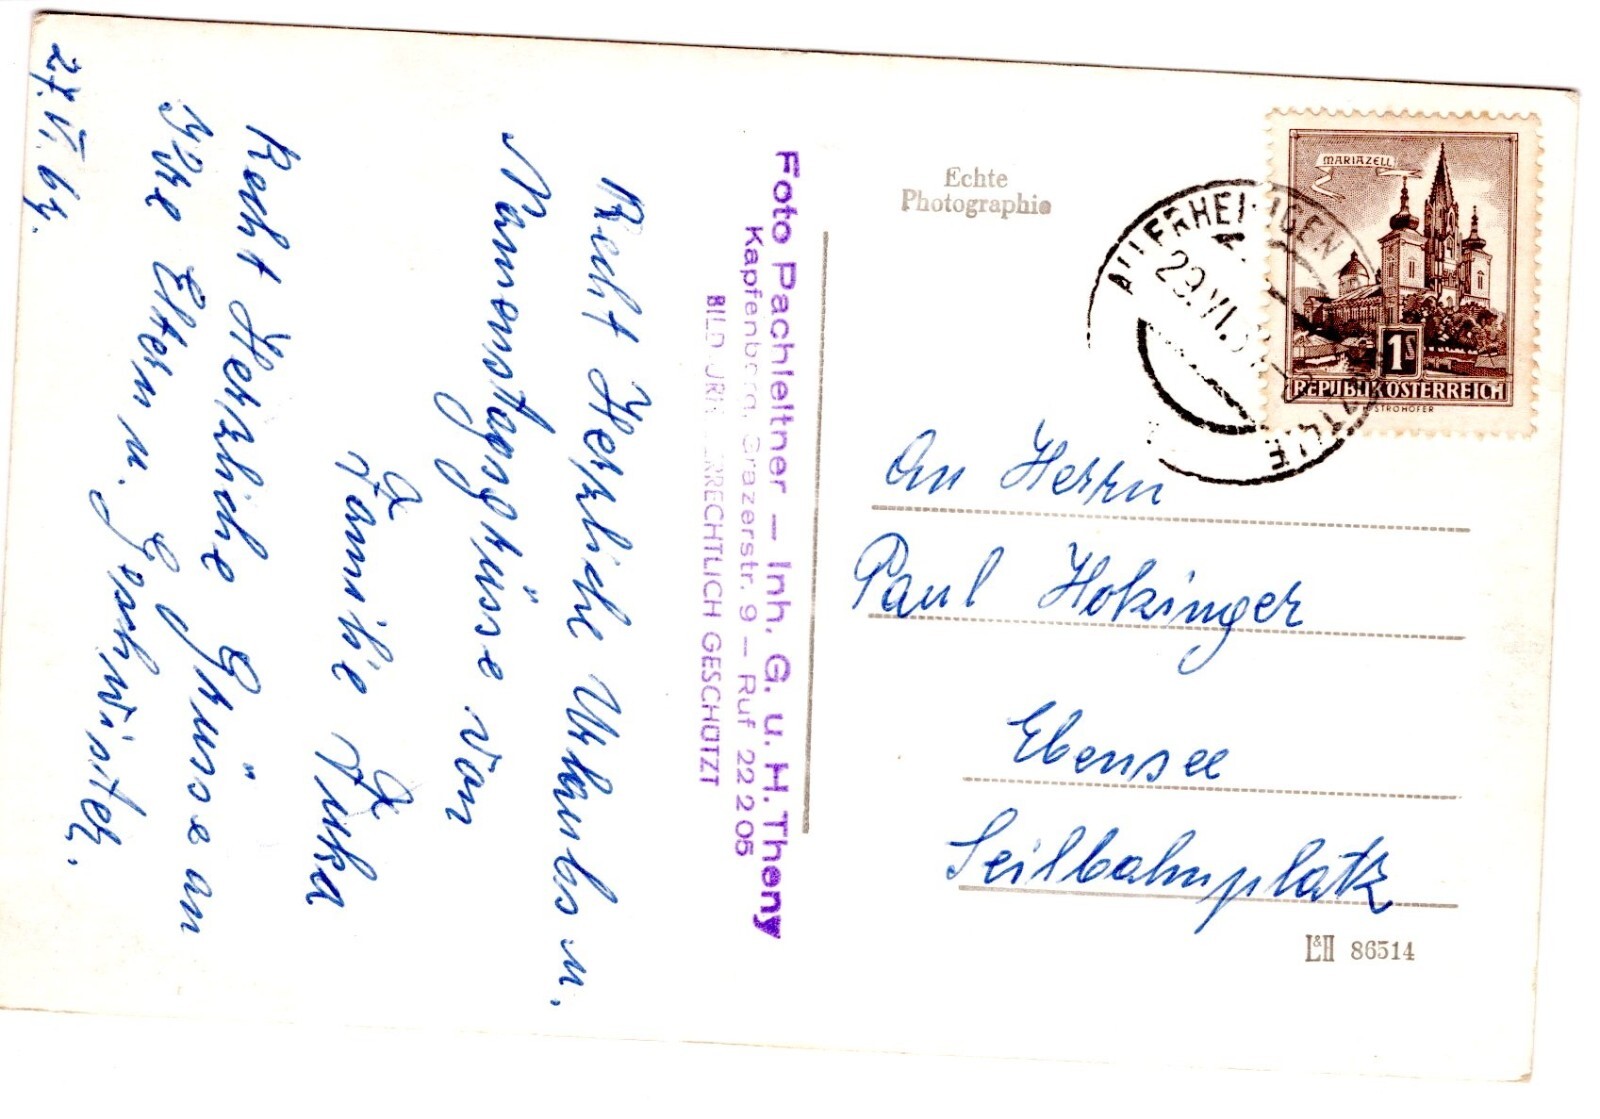 Recht Herzliche Urlaubs u.
Namenstagsgrüsse von
Familie Fuka
Recht Herzliche Grüsse an
Ihre Eltern u. Geschwister.
27.VI.64.
Foto Pachleitner — Inh. G. u. H. Thony
Kapfenberg, Grazerstr. 9 — Ruf 22 2 06
BILD URHEBERRECHTLICH GESCHÜTZT
Echte
Photographie
ALLERHEILIGEN
29.VI.
MARIAZELL
1S
REPUBLIK ÖSTERREICH
STROHOFER
An Herrn
Paul Hokinger
Ebensee
Seilbahnplatz
L&H 86514